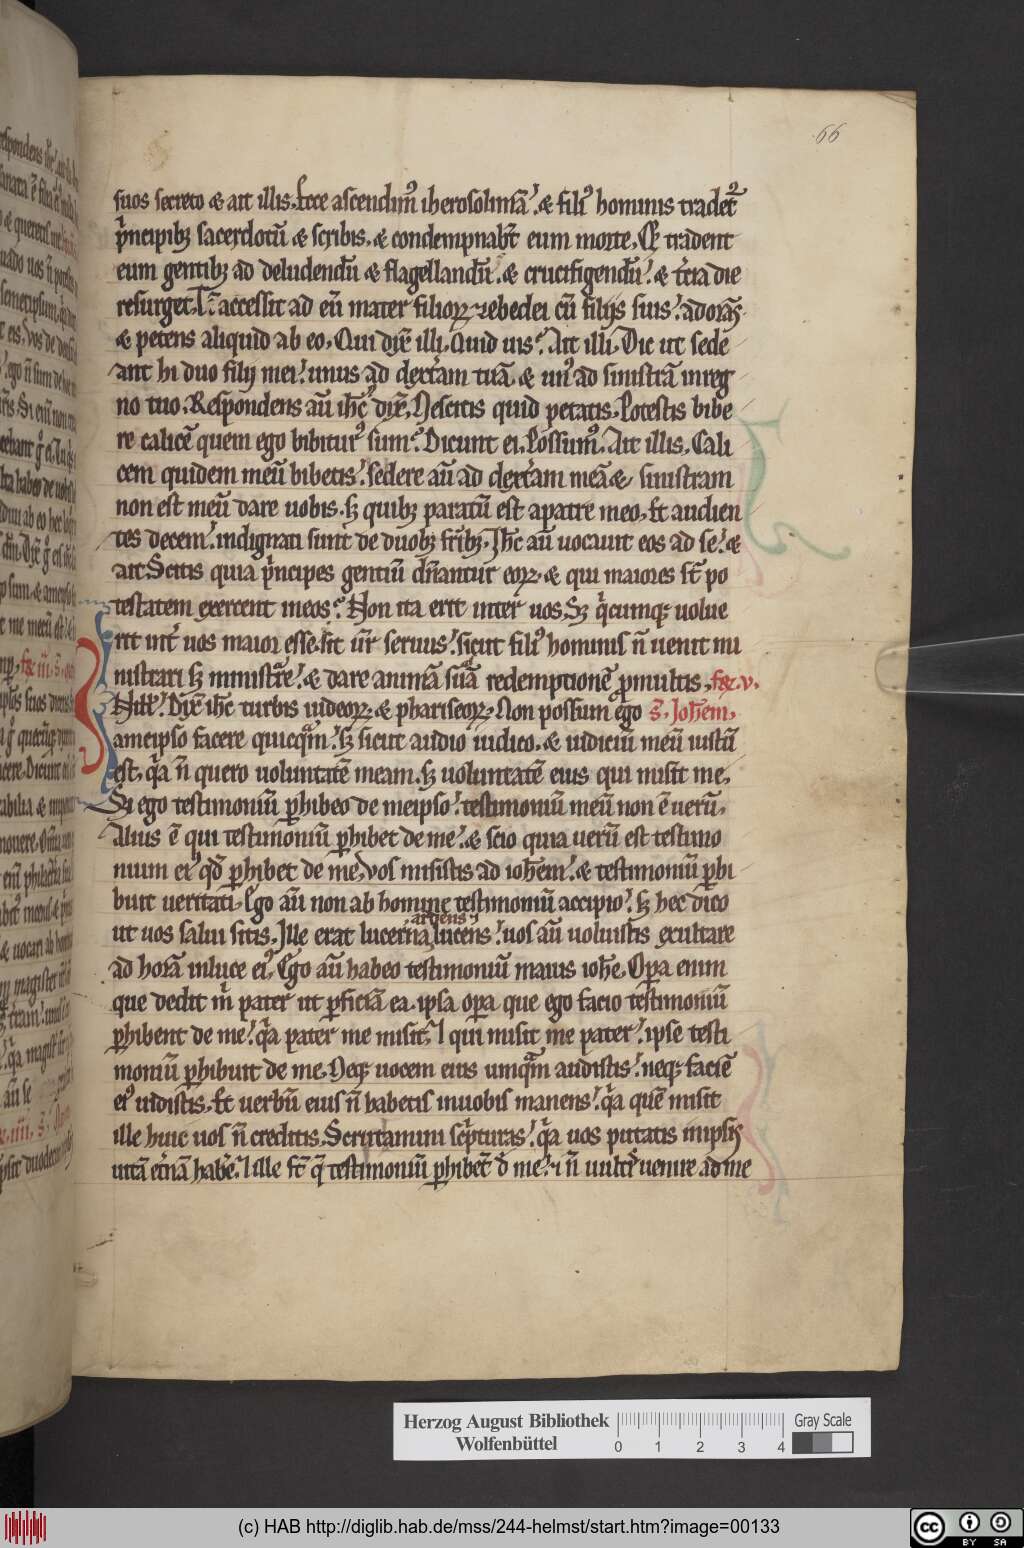 66
suos secreto & ait illis. Ecce ascendim᷒ iherosolimā. & fili᷒ hominis tradet᷒
p̃ncipibꝫ sacerdotū & scribis. & condempnabt̃ eum morte. Et tradent
eum gentibꝫ ad deludendū & flagellandū. & crucifigendū. & t̃cia die
resurget. T̃c accessit ad eū mater filioꝝ zebedei cū filijs suis. adorãs
& petens aliquid ab eo. Qui dix̃ illi. Quid uis? Ait illi. Dic ut sede
ant hi duo filij mei. unus ad dext̃am tuā. & un᷒ ad sinistrā in reg
no tuo. Respondens aū ihc̄ dix̃. Nescitis quid petatis. Potestis bibe
re calicē quem ego bibitur᷒ sum? Dicunt ei. Possum᷒. Ait illis. Cali
cem quidem meū bibetis. sedere aū ad dext̃am meā & sinistram
non est meū dare uobis. sꝫ quibꝫ paratū est a patre meo. Et audien
tes decem. indignati sunt de duobꝫ fr̃ibꝫ. Ihc̄ aū uocauit eos ad se. &
ait. Scitis quia p̃ncipes gentiū dn̄antur eoꝝ. & qui maiores st̄ po
testatem exercent in eos? Non ita erit inter uos. Sꝫ q̃cumqꝫ uolue
rit int̃ uos maior esse. sit ur̄ seruus. sicut fili᷒ hominis n̄ uenit mi
nistrari sꝫ ministr̃e. & dare animā suā redemptionē ꝓ multis. fr̃. v.
In ill̃. Dix̃ ihc̄ turbis iudeoꝝ. & phariseoꝝ. Non possum ego s̃. Johēm.
a meipso facere quicq̃m. sꝫ sicut audio iudico. & iudiciū meū iustū
est. q̃a n̄ quero uoluntatē meam. sꝫ uoluntatē eius qui misit me.
Si ego testimoniū ꝑhibeo de meipso. testimoniū meū non ē uerū.
Alius ē qui testimoniū ꝑhibet de me. & scio quia uerū est testimo
nium ei᷒ qd̄ ꝑhibet de me. Vos misistis ad iohēm. & testimoniū ꝑhi
buit ueritati. Ego aū non ab homine testimoniū accipio. sꝫ hec dico
ardens
ut uos salui sitis. Ille erat lucerna lucens. uos aū uoluistis exultare
ad horā in luce ei᷒. Ego aū habeo testimoniū maius iohē. Oꝑa enim
que dedit m̃ pater ut ꝑficiā ea. ipsa oꝑa que ego facio testimoniū
ꝑhibent de me. q̃a pater me misit. & qui misit me pater. ipse testi
moniū ꝑhibuit de me. Neqꝫ uocem eius umq̃m audistis. neqꝫ faciē
ei᷒ uidistis. Et uerbū eius n̄ habetis in uobis manens. q̃a quē misit
ille huic uos n̄ creditis. Scrutamini sc̃pturas. q̃a uos putatis in ipsis
uitā et̃nā hab̃e. & ille st̄ q̄ testimoniū ꝑhibet̃ d̃ me. & n̄ uult̃ uenire ad me
Herzog August Bibliothek
Wolfenbüttel
0 1 2 3 4
Gray Scale
(c) HAB http://diglib.hab.de/mss/244-helmst/start.htm?image=00133
cc BY SA